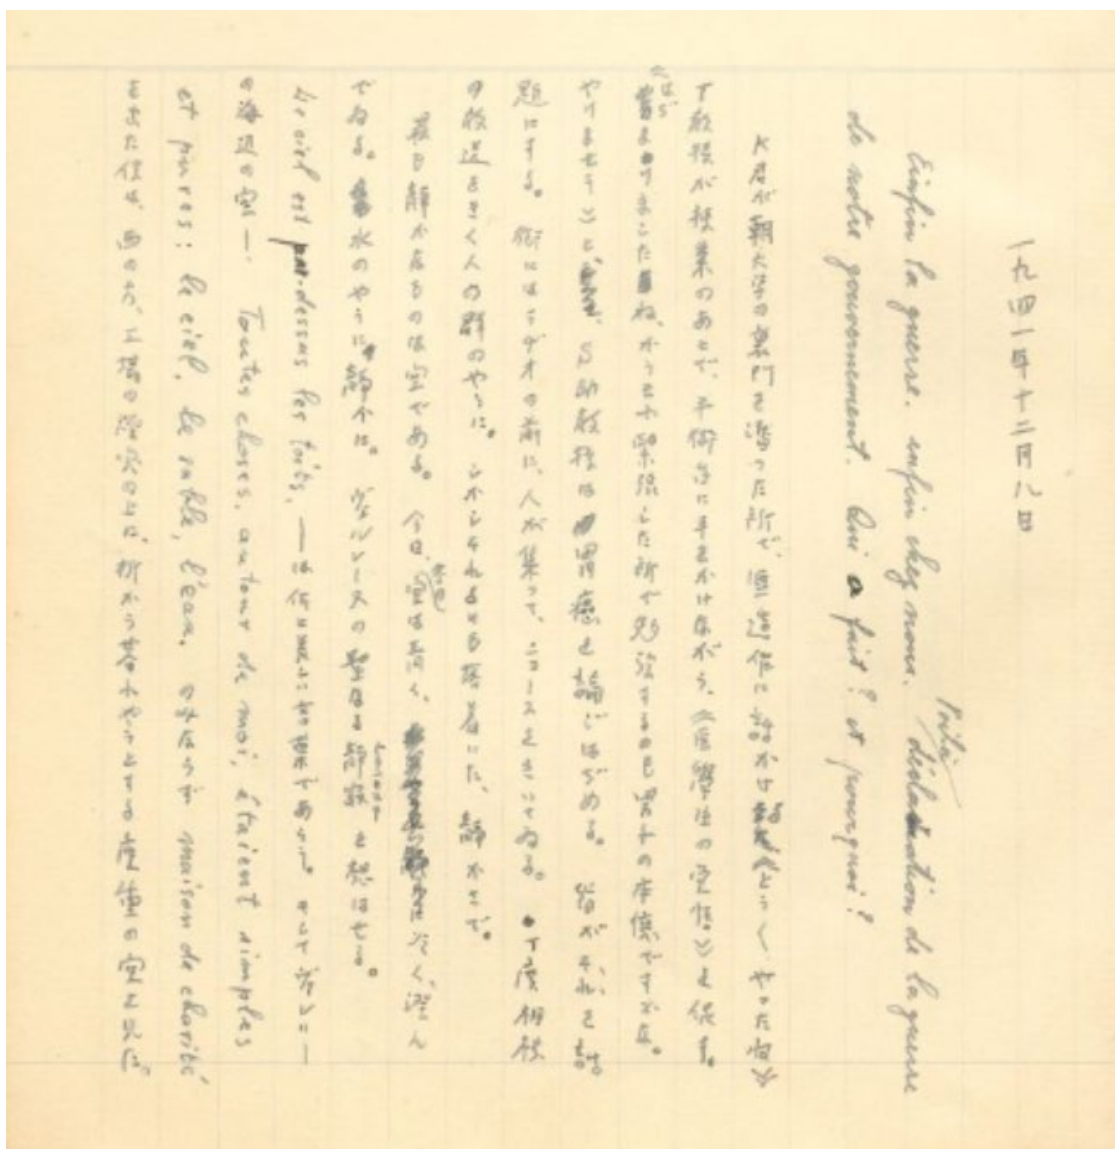 一九四一年十二月八日
Enfin la guerre, enfin chez nous. Voilà déclaration de la guerre
de notre gouvernement. Qui a fait? et pourquoi?
K君が朝大学の裏門を這入った所で、無造作に話かける《とう〱やった
T教授が授業のあとで、手術台に手をかけながら、《医學生の覚悟》を促す。
《はじまりましたね、かうした緊張した所で勉強するのも男子の本懐ですかな。
やりませう》と、S助教授は胃癌を論じはじめる。皆がそれを話
題にする。街にはラヂオの前に、人が集って、ニュースをきいてゐる。丁度相撲
の放送をきく人の群のやうに。しかしそれよりも落着いた、静かさで。
最も静かなるものは空である。今日、空は青く、冷く、澄ん
でゐる。水のやうに静かに。ヴェルレーヌの聖なる静寂を想はせる。
Le ciel est par-dessus les toits, ―は何と美しい言葉であらう。そしてヴァレリー
の海辺の空―. Toutes choses, autour de moi, étaient simples
et pures: le ciel, le sable, l'eau. のみならず maison de charité
を出た僕は、西の方、工場の煙突の上に、折から暮れやうとする荘重の空を見た。